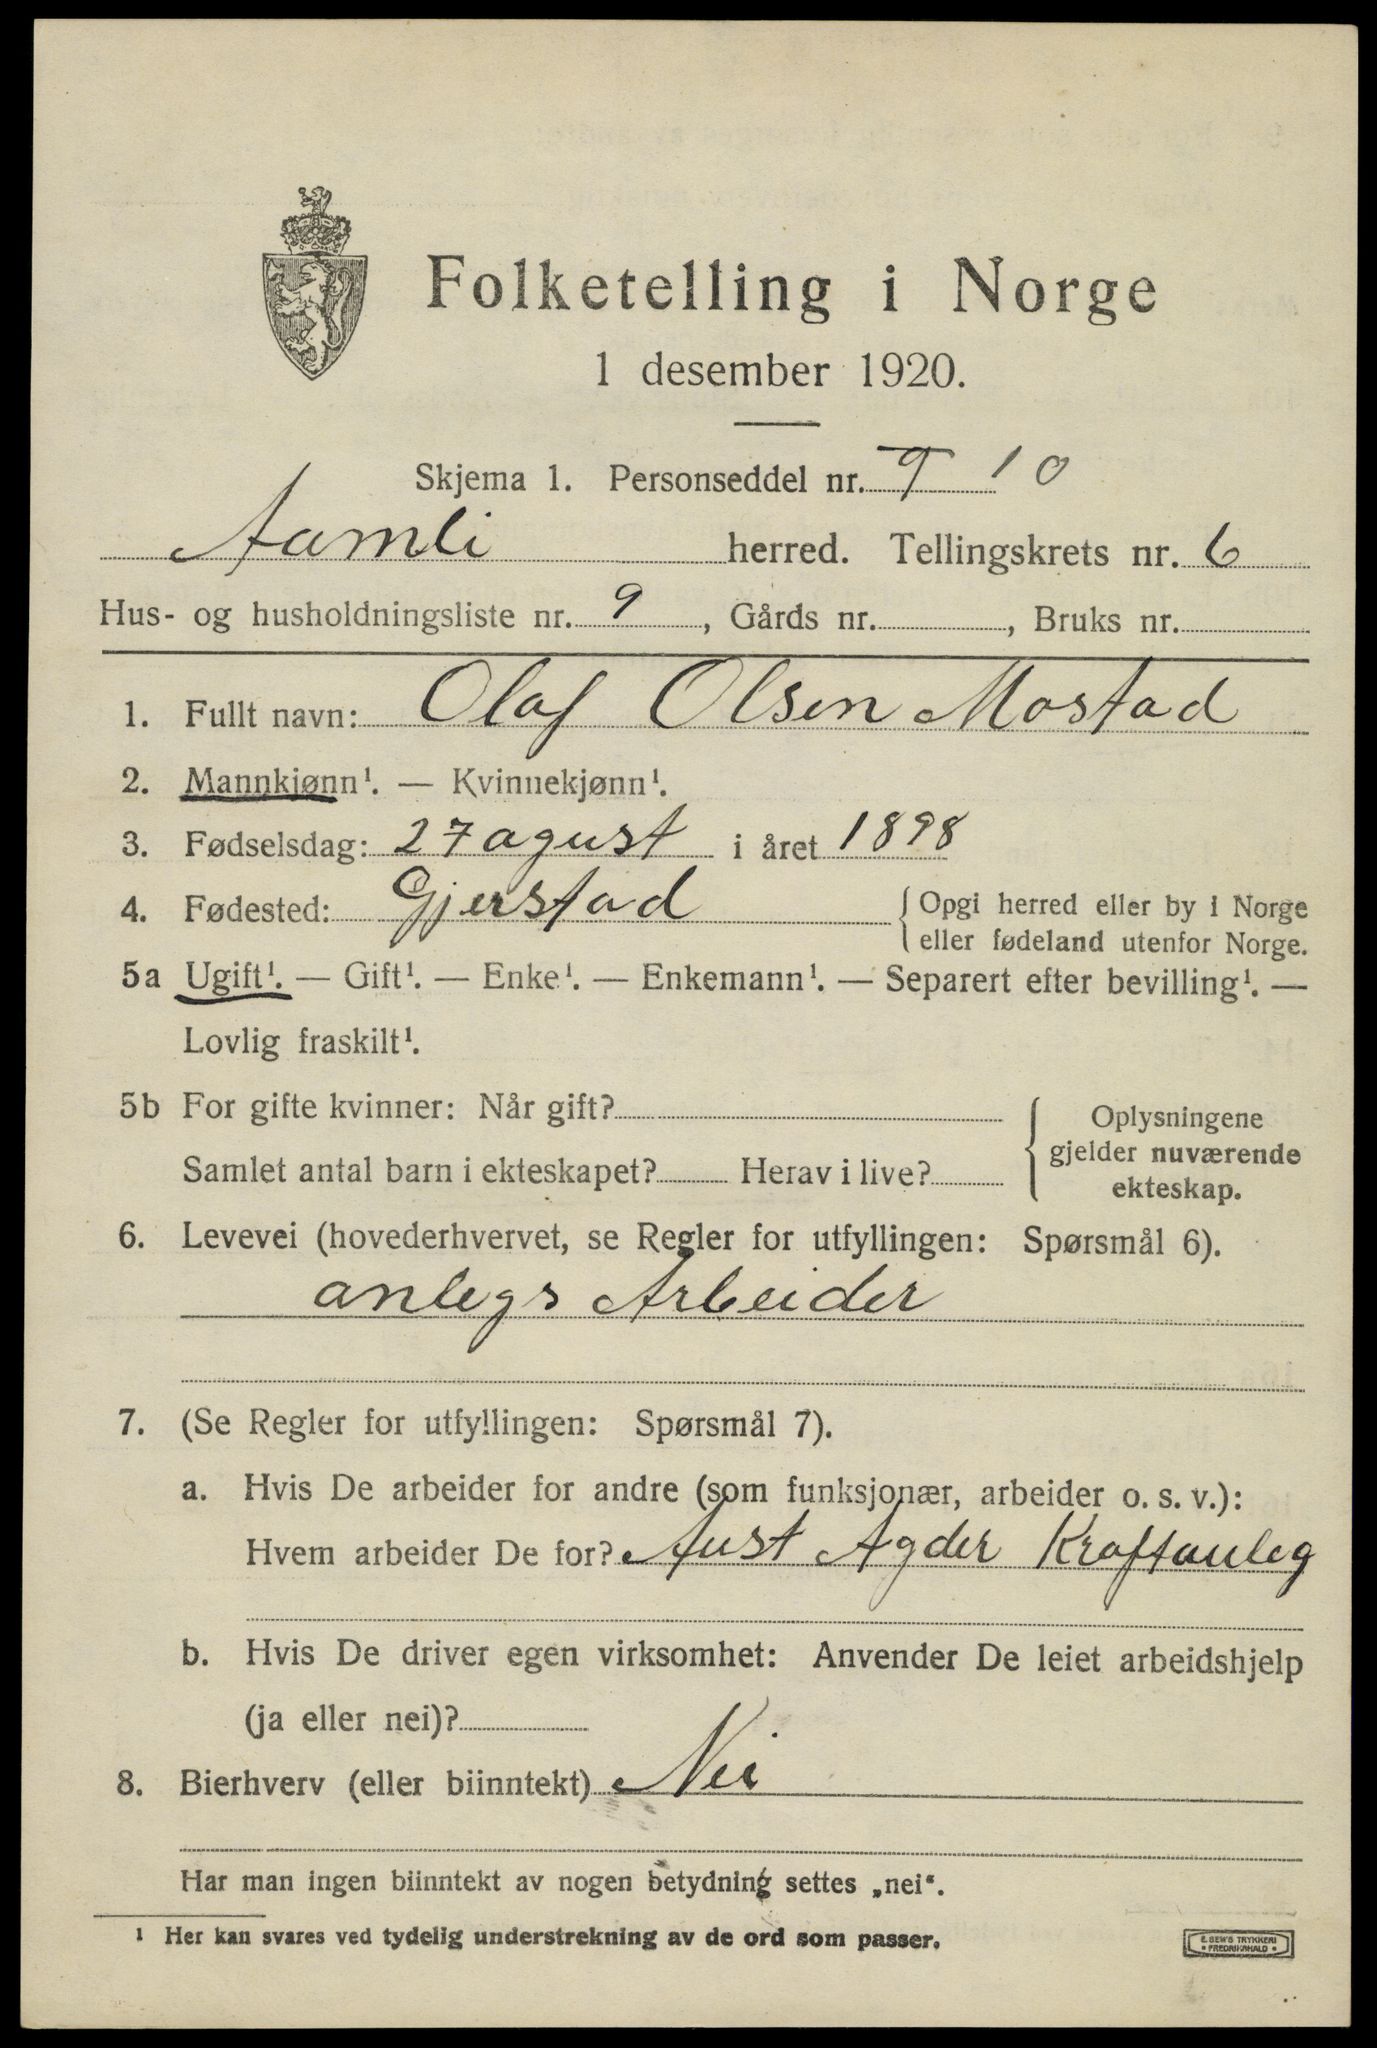 Folketelling i Norge
1 desember 1920.
Skjema 1. Personseddel nr. 9 10
Aamli herred. Tellingskrets nr. 6
Hus- og husholdningsliste nr. 9, Gårds nr. , Bruks nr.
1. Fullt navn: Olaf Olsen Mostad
2. Mannkjønn¹. — Kvinnekjønn¹.
3. Fødselsdag: 27 agust i året 1898
4. Fødested: Gjerstad { Opgi herred eller by i Norge
eller fødeland utenfor Norge.
5a Ugift¹. — Gift¹. — Enke¹. — Enkemann¹. — Separert efter bevilling¹. —
Lovlig fraskilt¹.
5b For gifte kvinner: Når gift?
Samlet antal barn i ekteskapet? Herav i live?
Oplysningene
gjelder nuværende
ekteskap.
6. Levevei (hovederhvervet, se Regler for utfyllingen: Spørsmål 6).
anlegs Arbeider
7. (Se Regler for utfyllingen: Spørsmål 7).
a. Hvis De arbeider for andre (som funksjonær, arbeider o. s. v.):
Hvem arbeider De for? Aust Agder Kraftanleg
b. Hvis De driver egen virksomhet: Anvender De leiet arbeidshjelp
(ja eller nei)?
8. Bierhverv (eller biinntekt) Nei
Har man ingen biinntekt av nogen betydning settes „nei“.
¹ Her kan svares ved tydelig understrekning av de ord som passer.
E. SEM'S TRYKKERI
• FREDRIKSHALD •